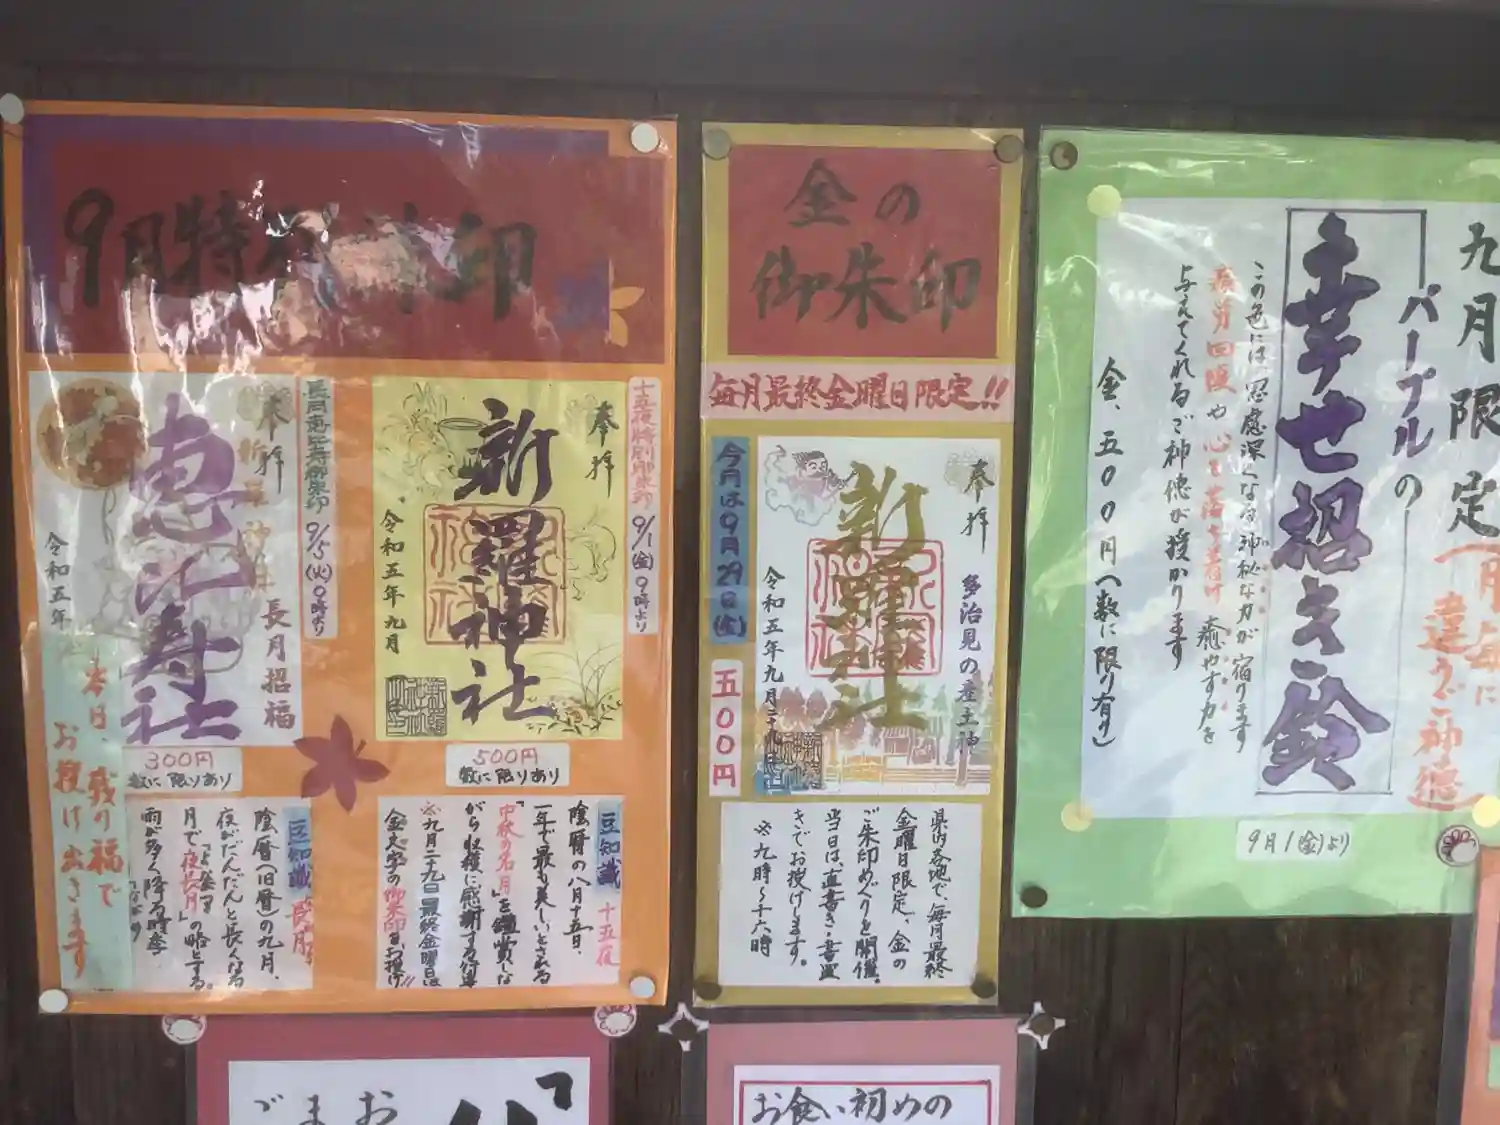 9月特
朱印
長月恵比寿御朱印
9/5(火)9時より
奉拝
恵比寿社
長月招福
令和五年
本日、残り福で
お授け出きます
300円
数に限りあり
豆知識 長月
陰暦(旧暦)の九月、
夜がだんだんと長くなる
月で「夜長月」の略とする。
雨が多く降る時季
十五夜特別御朱印
9/1(金)9時より
奉拝
新羅神社
令和五年九月
500円
数に限りあり
豆知識 十五夜
陰暦の八月十五日、
一年で最も美しいとされる
「中秋の名月」を鑑賞しな
がら収穫に感謝する行事
※九月二十九日最終金曜日は
金文字の御朱印をお授け!!
金の
御朱印
毎月最終金曜日限定!!
今月は9月29日(金)
五〇〇円
奉拝
多治見の産土神
新羅神社
令和五年九月二十九日
県内各地で、毎月最終
金曜日限定、金の
ご朱印めぐりを開催。
当日は、直書き・書置
きでお授けします。
※九時～十六時
九月限定
(月毎に
違うご神徳)
パープルの
幸せ招き鈴
この色には、思慮深くなる神秘な力が宿ります
疲労回復や心を落ち着け癒やす力を
与えてくれるご神徳が授かります
金、五〇〇円(数に限り有り)
9月1(金)より
お食い初めの